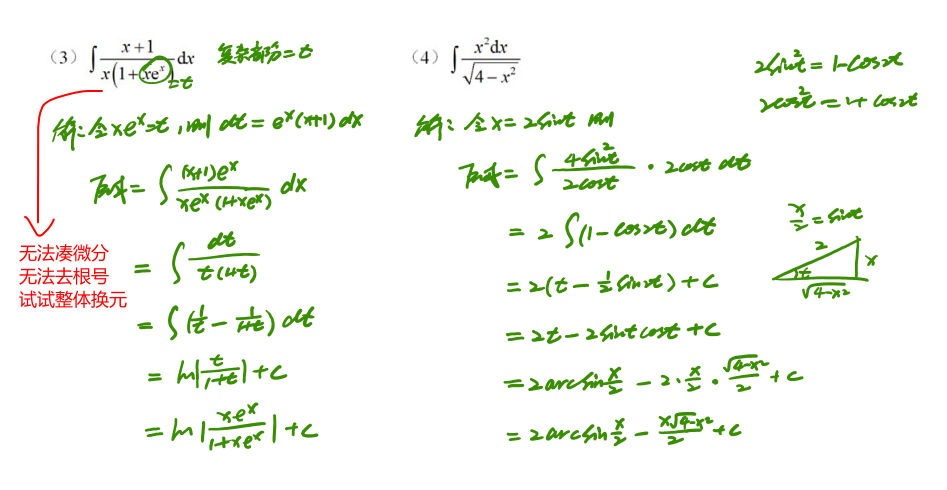 (3) ∫ (x+1)/(x(1+xeˣ)) dx 复杂部分=t
=t
解:令xeˣ=t,则 dt=eˣ(x+1)dx
原式=∫ (x+1)eˣ/(xeˣ(1+xeˣ)) dx
无法凑微分
无法去根号
试试整体换元
=∫ dt/(t(1+t))
=∫(1/t - 1/(1+t))dt
=ln|t/(1+t)|+C
=ln|xeˣ/(1+xeˣ)|+C
(4) ∫ x²dx/√(4-x²)
2sin²t=1-cos2t
2cos²t=1+cos2t
解:令x=2sint 则
原式=∫ 4sin²t/(2cost)·2cost dt
=2∫(1-cos2t)dt
=2(t-½sin2t)+C
=2t-2sintcost+C
=2arcsin x/2 - 2·x/2·√(4-x²)/2+C
=2arcsin x/2 - x√(4-x²)/2+C
x/2=sint
2
x
t
√(4-x²)